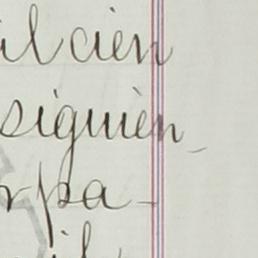 il cien
siguien-
pa-